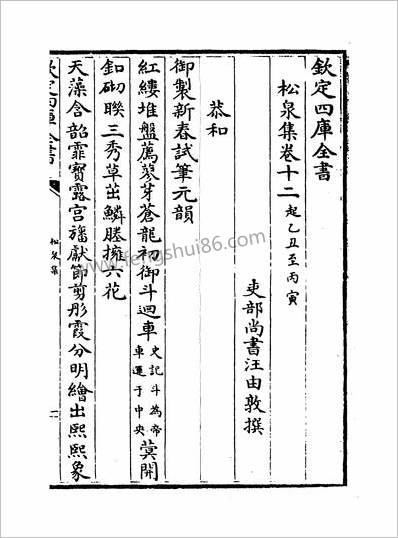 欽定四庫全書
松泉集卷十二起乙丑至丙寅
吏部尚書汪由敦撰
恭和
御製新春試筆元韻
紅縷堆盤薦蓼芽蒼龍初御斗迴車史記斗為帝車運于中央蓂開
釦砌聯三秀草茁鱗塍擁六花
天藻含韶霏寳露宫旛獻節剪彤霞分明繪出熙熙象
欽定四庫全書
松泉集
一
www.fengshui86.com